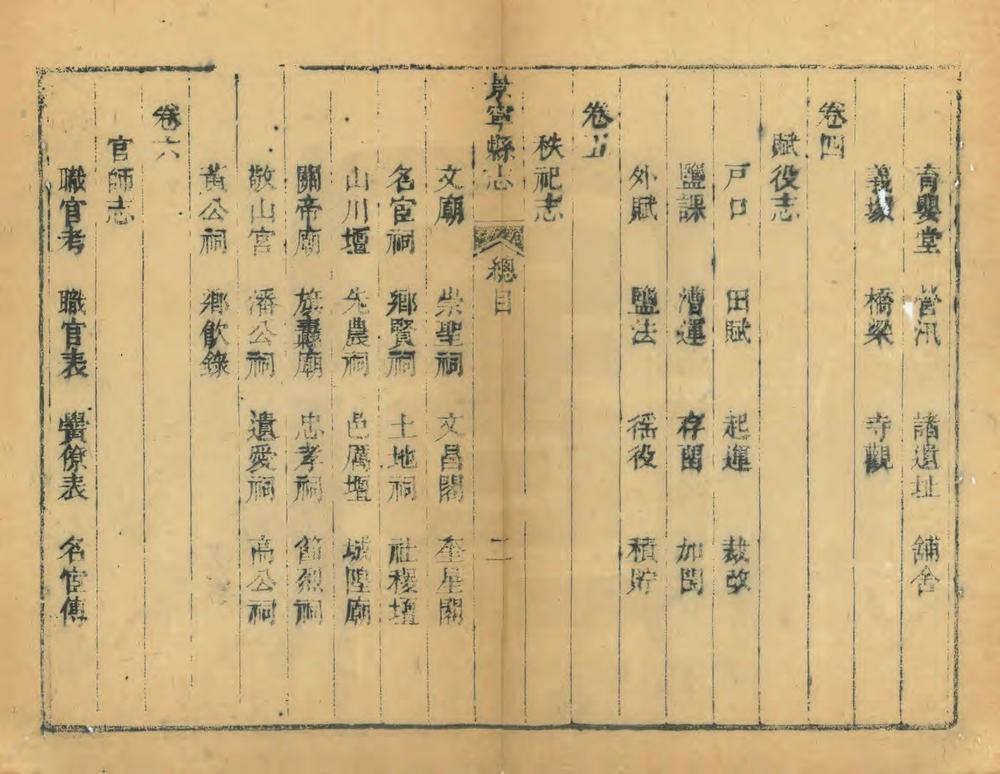 育嬰堂 營汛 諸遺址 舖舍
義塚 橋梁 寺觀
卷四
賦役志
戸口 田賦 起運 裁改
鹽課 漕運 存留 加閏
外賦 鹽法 徭役 積貯
卷五
秩祀志
景寧縣志 總目 二
文廟 崇聖祠 文昌閣 奎星閣
名宦祠 鄉賢祠 土地祠 社稷壇
山川壇 先農祠 邑厲壇 城隍廟
關帝廟 旗纛廟 忠孝祠 節烈祠
敬山宮 潘公祠 遺愛祠 高公祠
黃公祠 鄉飲錄
卷六
官師志
職官考 職官表 黌僚表 名宦傳